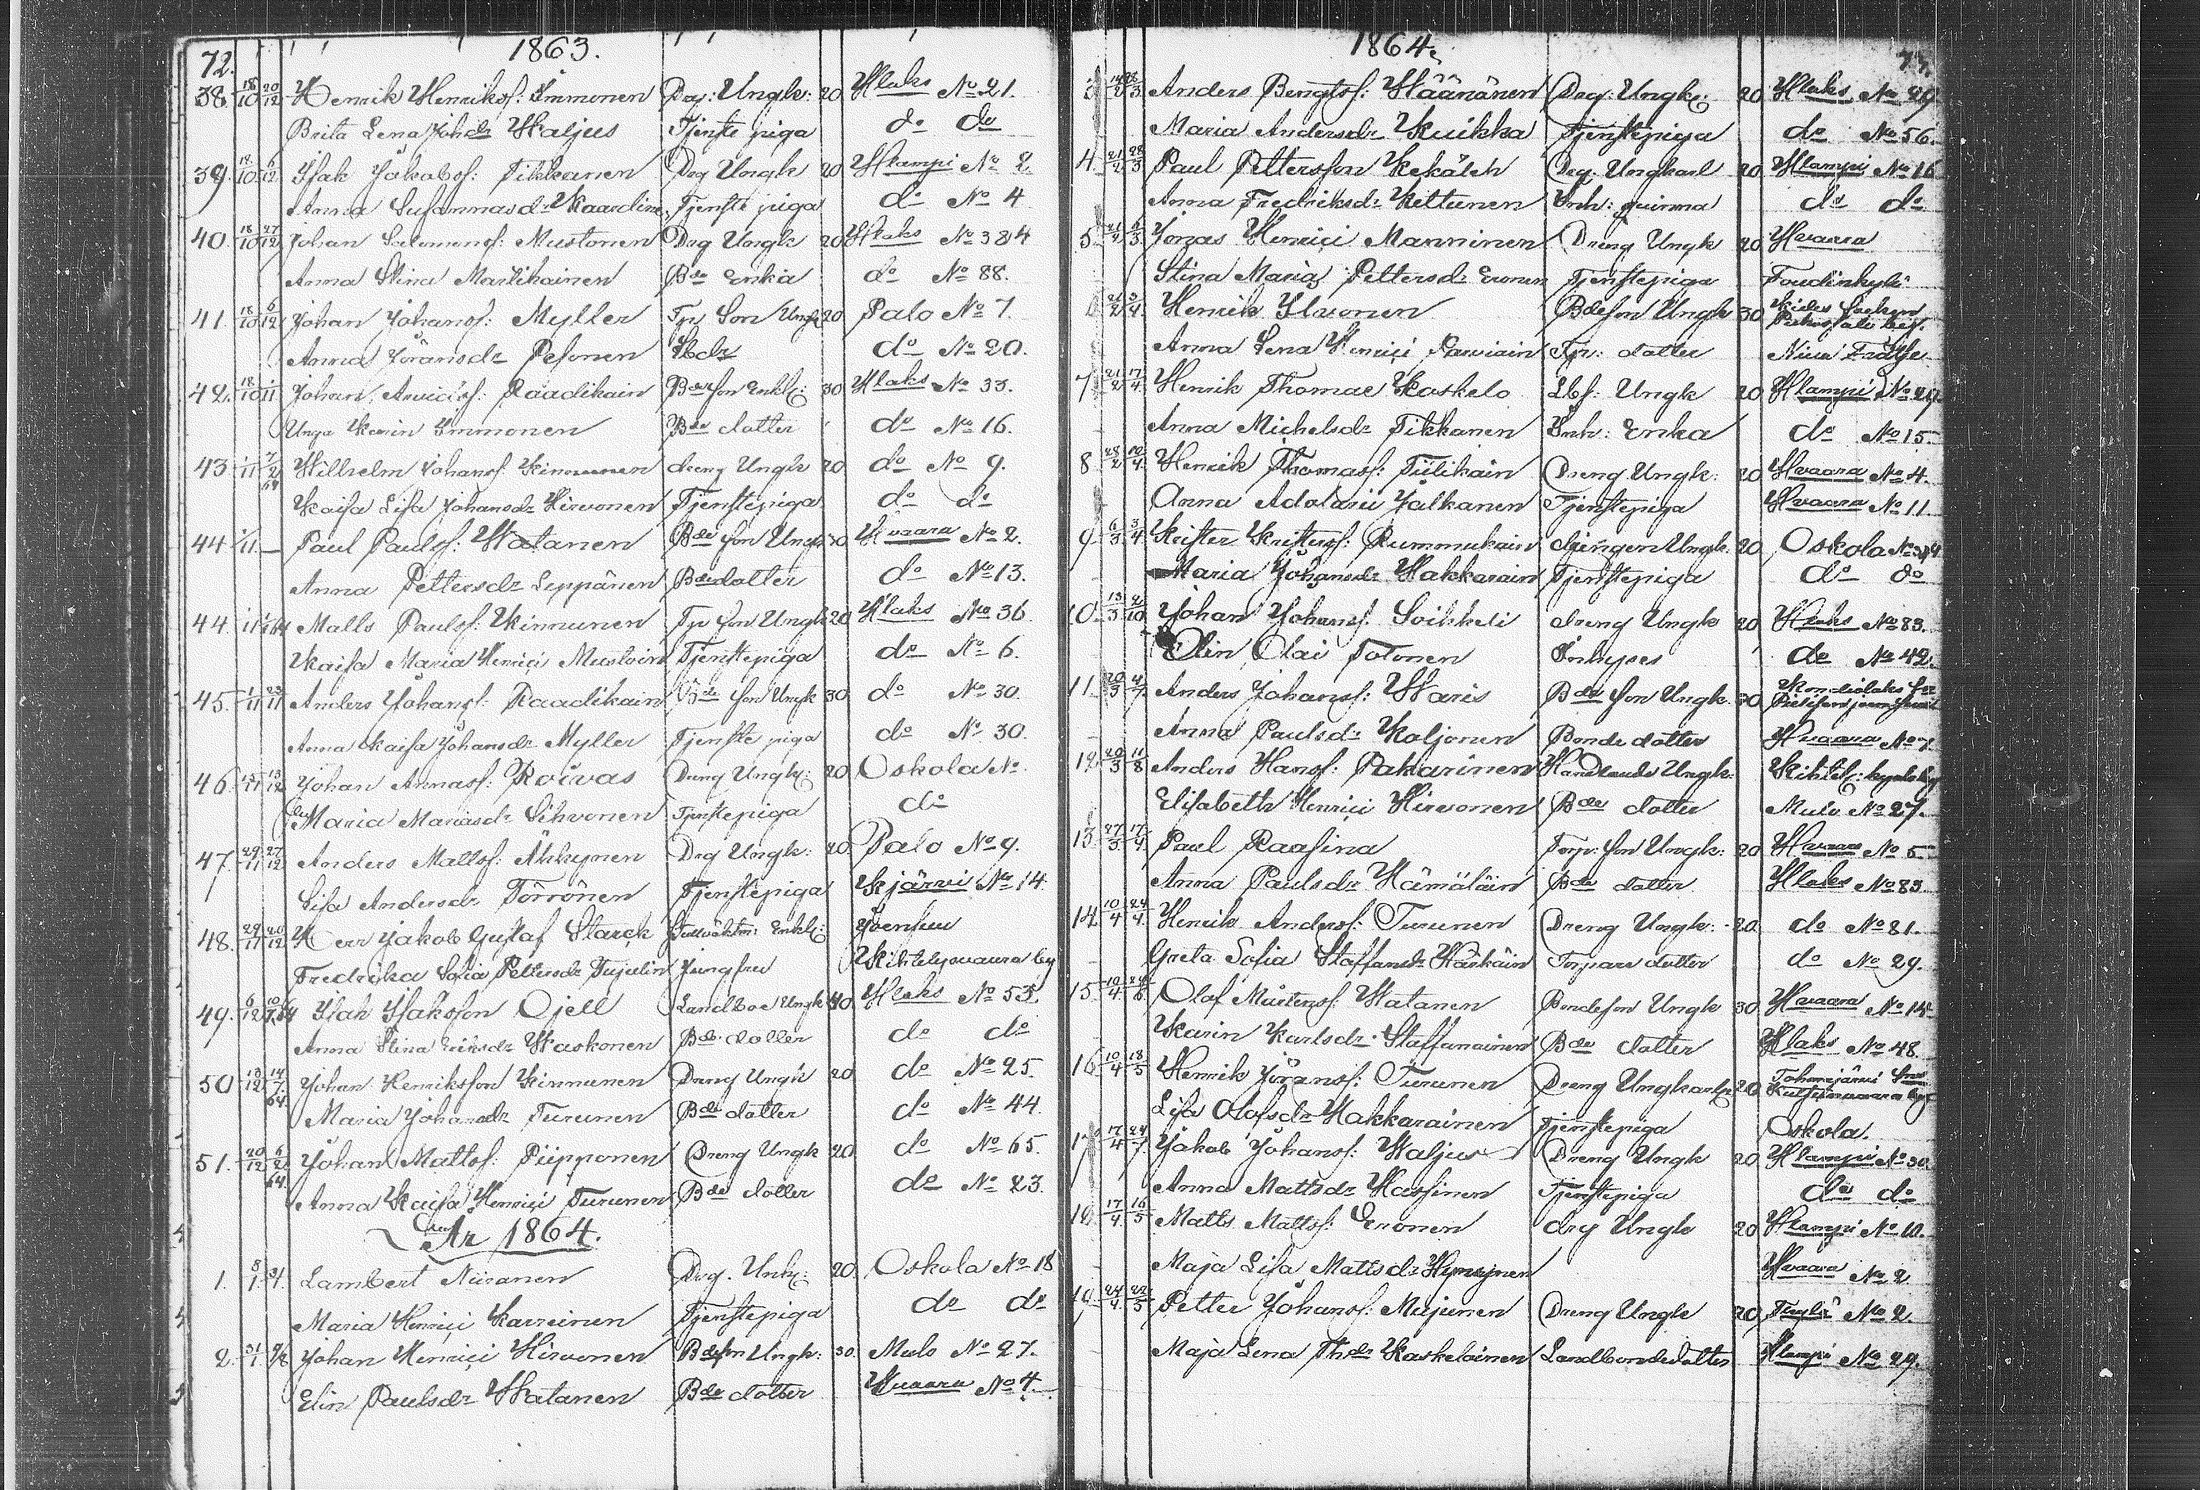 72. 1863.
38. 18/10 20/12 Henrik Henriksf: Immonen Drg: Ungk: 20 Hlaks No 21.
Brita Lena Johdr Haljus Tjenstepiga do do
39. 18/10 6/12 Isak Jakobsf: Tikkanen Drg Ungk 20 Hlampi No 2
Anna Susannasdr Tjenste piga do No 4
40. 18/10 27/12 Johan Salomonsf: Mustonen Drg Ungk 20 Hlaks No 384
Anna Stina Martikainen Bde Enka do No 88.
41. 18/10 6/12 Johan Johansf: Myller Tpr Son Ungk 20 Palo No 7.
Anna Jöransdr Pesonen do No 20.
42. 18/10 1/11 Johan Arvidsf: Räädikäin Bdeson Enkl: 30 Hlaks No 33.
Karin Immonen Bde dotter do No 16.
43 1/11 7/2 64 Wilhelm Johansf: Kinnunen dreng Ungk 20 do No 9.
Kaisa Lisa Johansdr Hirvonen Tjenstepiga do do
44 1/11 — Paul Paulsf: Hatanen Bde son Ungk 30 Hvaara No 2.
Anna Pettersdr Leppänen Bdedotter do No 13.
44. 1/11 Matts Paulsf: Kinnunen Tpr son Ungk 20 Hlaks No 36
Kaisa Maria Henrici Mustoin Tjenstepiga do No 6.
45. 1/11 23/11 Anders Johansf: Raadikain Bde son Ungk 30 do No 30.
Anna Kaisa Johansdr Myller Tjenste piga do No 30.
46 13/12 Johan Annasf: Koivas Dreng Ungk: 20 Oskola No
Maria Mariasdr Sihvonen Tjenstepiga do
47. 29/11 27/12 Anders Mattsf: Ähkynen Drg Ungk: 20 Palo No 9.
Lisa Andersdr Törrönen Tjenstepiga Kjärvi No 14
48. 29/11 20/12 Herr Jakob Gustaf Starck Enkl: Joensuu
Fredrika Sofia Pettersdr Tujulin Jungfru Kihtelysvaara by
49. 6/12 Isak Isaksson Ojell Landbo Ungk 40. Hlaks No 53.
Anna Stina Eriksdr Haskonen Bde dotter do do
50 13/12 14/7 64 Johan Henriksson Kinnunen Dreng Ungk 20 do No 25.
Maria Johansdr Turunen Bde dotter do No 44.
51. 20/12 6/2 64. Johan Mattsf: Piipponen Dreng Ungk 20 do No 65.
Anna Kaisa Henrici Turunen Bde dotter do No 23.
År 1864.
1. Lambert Niiranen Drg. Unk: 20. Oskola No 18
Maria Henrici Karreinen Tjenstepiga do do
2. 31/1 Johan Henrici Hirvonen Bdeson Ungk: 30. Mulo No 27.
Elin Paulsdr Hatanen Bde dotter Hvaara No 4.
1864. 73.
3 Anders Bengtsf: Väänänen Drg: Ungk: 20 Hlaks No 29
Maria Andersdr Kuikka Tjenstepiga do No 56.
4. 21/2 28/3 Paul Pettersson Kekäleh Drg. Ungkarl 20 Hlampi No 16
Anna Fredriksdr Kettunen Inh: qvinna do do
5. Jonas Henrici Manninen Dreng Ungk 20 Hvaara
Stina Maria Pettersdr Eronen Tjenstepiga
21/2 3/4 Henrik Ilvonen Bdeson Ungk 30
Anna Lena Henrici Parviain Tpr: dotter
7 21/2 17/4. Henrik Thomae Kaskelo Lbf: Ungk 20 Hlampi No 29
Anna Michelsdr Tikkanen Inh: Enka do No 15.
8 28/2 Henrik Thomasf: Tiilikäin Dreng Ungk: 20 Hvaara No 4.
Anna Adolarii Jalkanen Tjenstepiga Hvaara No 11
9 6/3 3/4 Krister Kristersf: Rummukain Ungk. 20 Oskola
Maria Johansdr Hakkarain Tjenstepiga do do
10. 13/3 2/10 Johan Johansf. Soikkeli dreng Ungk 20 Hlaks No 83.
Elin Olai Tolonen Inhyses do No 42.
11. 20/3 4/7 Anders Johansf: Waris Bde son Ungk. 30
Anna Paulsdr Koljonen Bonde dotter Hvaara No 7.
12. 20/3 11/8 Anders Hansf: Pakarinen Handlande Ungk:
Elisabeth Henrici Hirvonen Bde dotter Mulo No 27.
13. 27/3 17/4. Paul Raasina Torp: son Ungk: 20 Hvaara No 5
Anna Paulsdr Hämäläin Bde dotter Hlaks No 83.
14. 10/4 24/4. Henrik Andersf: Turunen Dreng Ungk: 20 do No 81.
Greta Sofia Staffansdr Torpare dotter do No 29.
15. 10/4 Olof Mårtensf: Hatanen Bondeson Ungk 30 Hvaara No 15
Karin Karlsdr Staffanainen Bde dotter Hlaks No 48.
16. 10/4 18/5 Henrik Jöransf: Turunen Dreng Ungkarl 20 Tohmajärvi
Lisa Olofsdr Hakkarainen Tjenstepiga Oskola.
17 17/4 24/7 Jakob Johansf: Haljus Dreng Ungk 20 Hlampi No 30
Anna Mattsdr Hassinen Tjenstepiga do do
18. 17/4 16/5 Matts Mattsf: Eronen drg Ungk 20 Hlampi No 10.
Maja Lisa Mattsdr Hvaara No 2
19. 24/4 22/5 Petter Johansf: Mujunen Dreng Ungk 20 No 2.
Maja Lena Thdr Kaskelainen Landbondedotter Hlampi No 29.